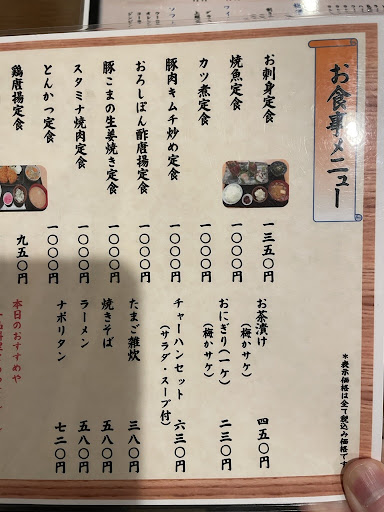 お食事メニュー
お刺身定食 一三五〇円
焼魚定食 一〇〇〇円
カツ煮定食 一〇〇〇円
豚肉キムチ炒め定食 一〇〇〇円
おろしぽん酢唐揚定食 一〇〇〇円
豚こまの生姜焼き定食 一〇〇〇円
スタミナ焼肉定食 一〇〇〇円
とんかつ定食 一〇〇〇円
鶏唐揚定食 九五〇円
*表示価格は全て税込み価格です
お茶漬け 四五〇円
(梅かサケ)
おにぎり(一ケ) 二三〇円
(梅かサケ)
チャーハンセット 六三〇円
(サラダ・スープ付)
たまご雑炊 三八〇円
焼きそば 五八〇円
ラーメン 五八〇円
ナポリタン 七二〇円
本日のおすすめや